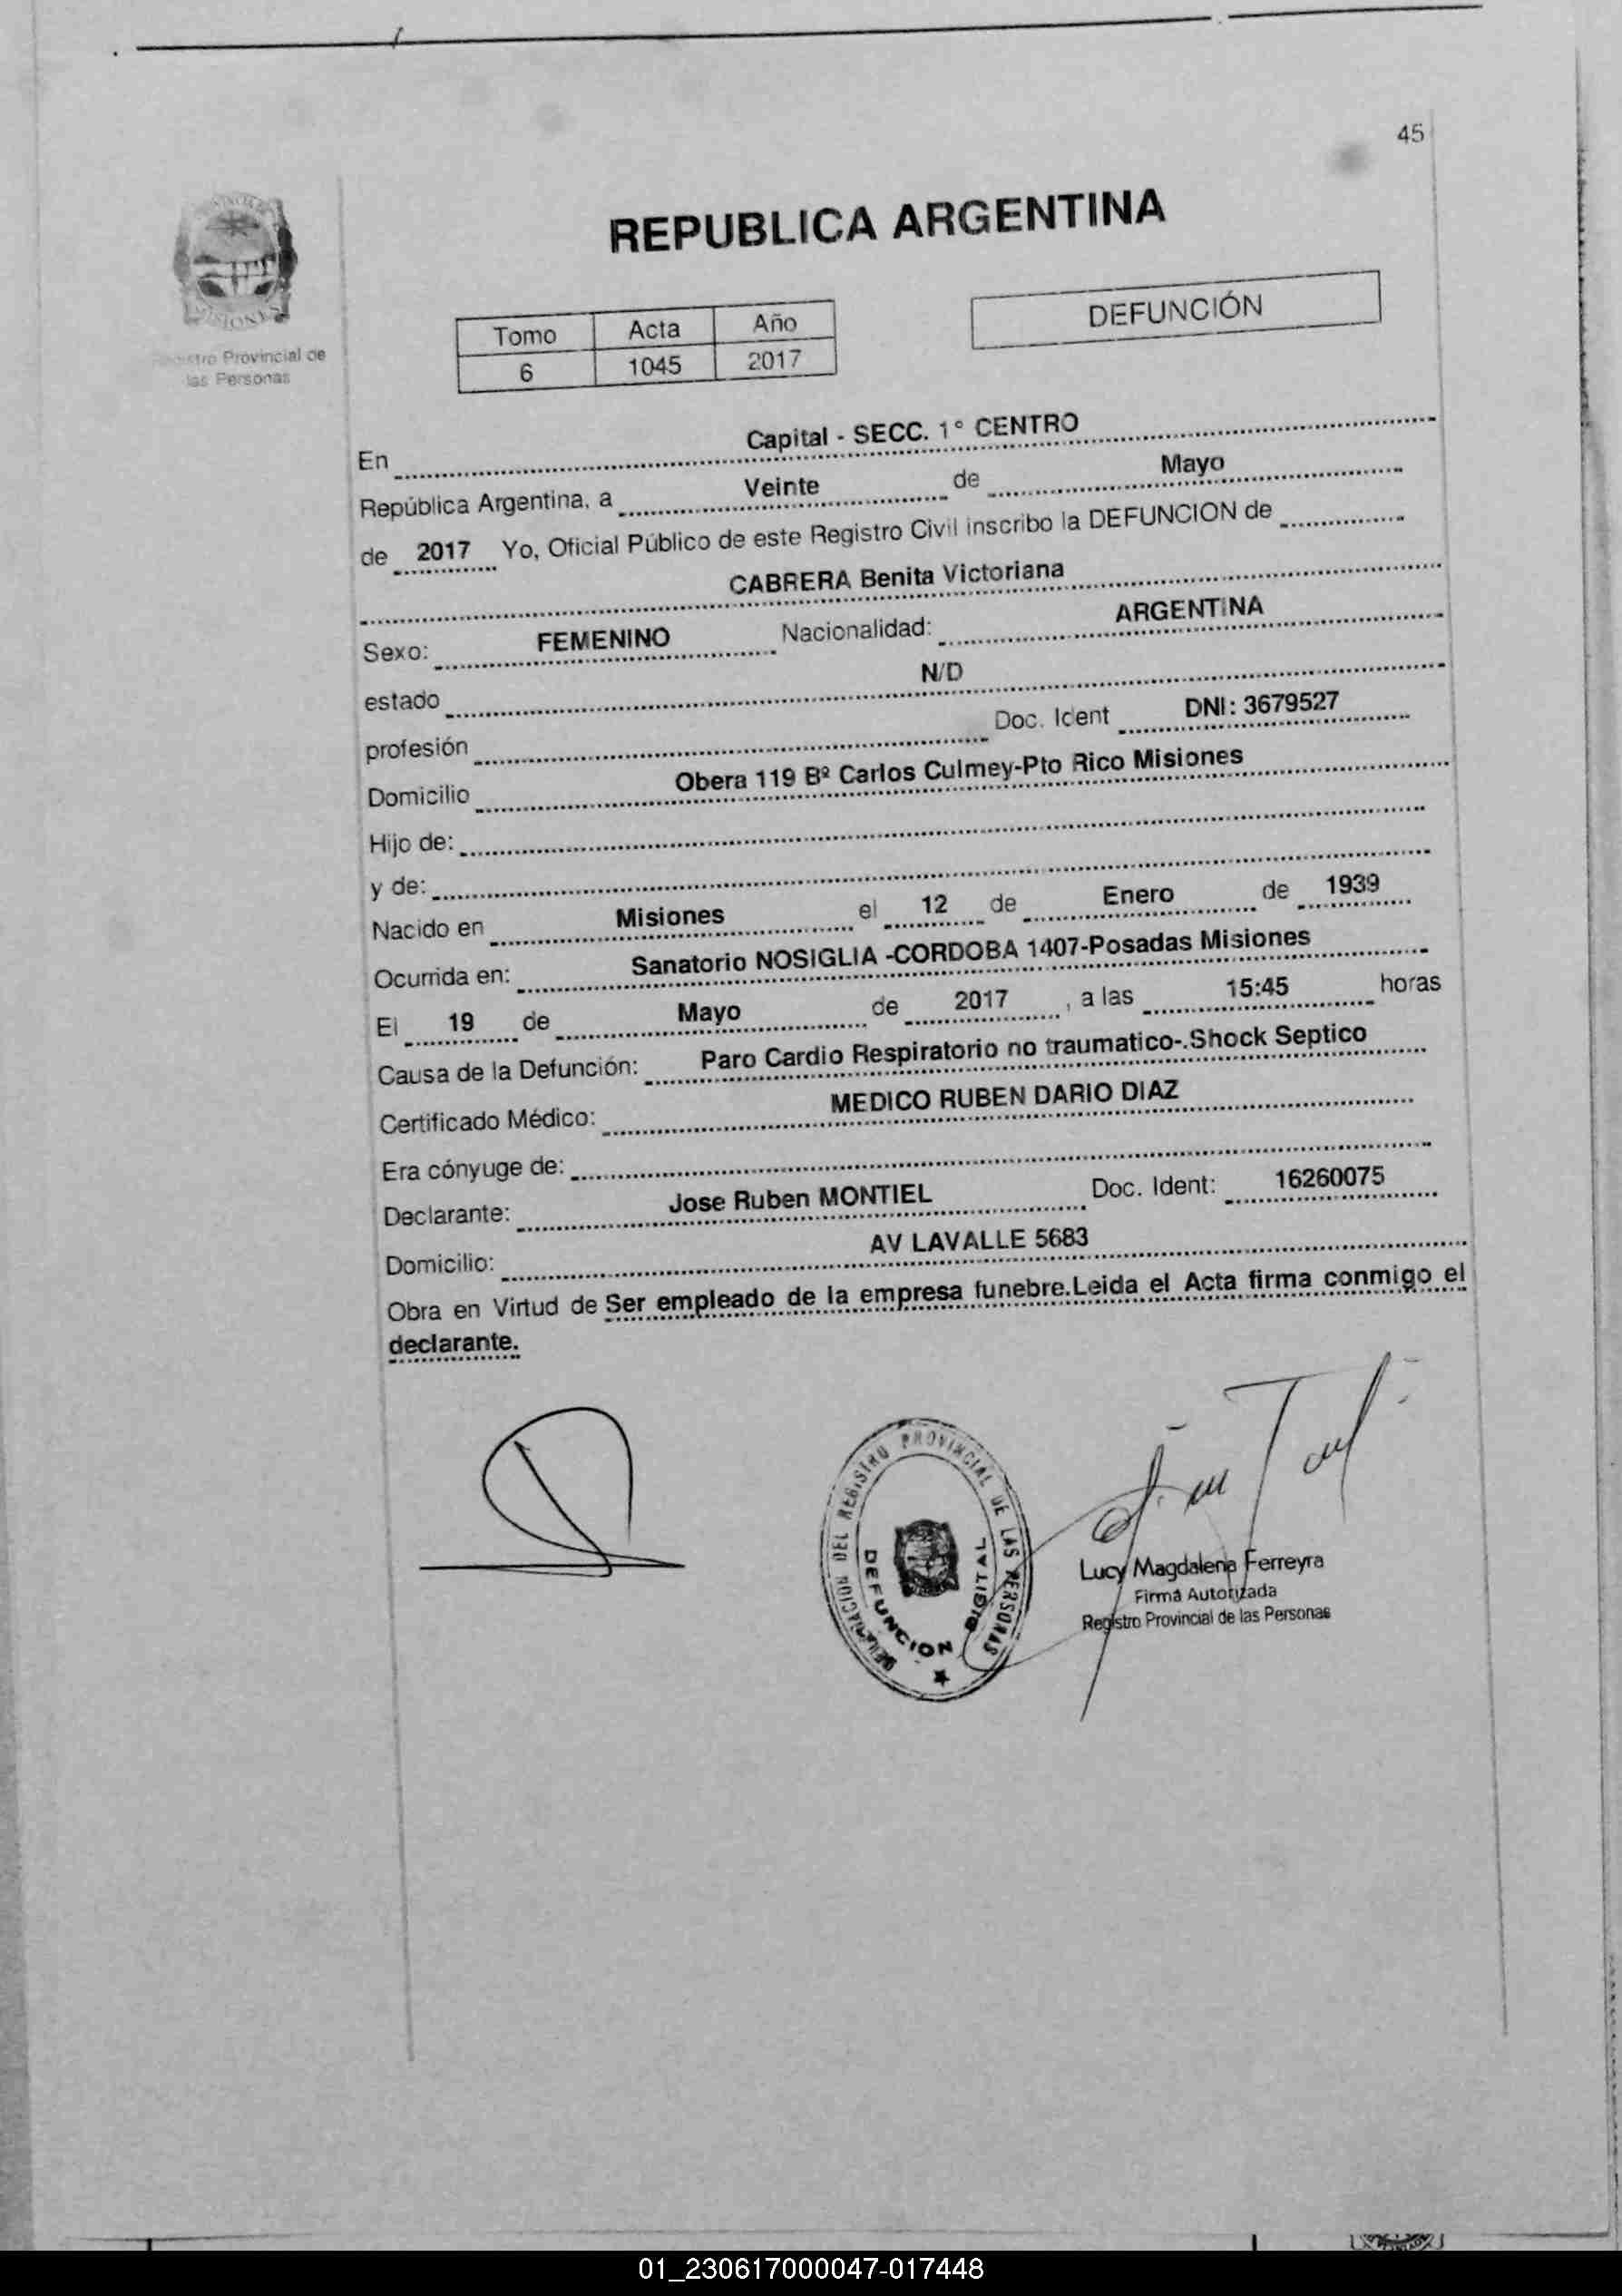 45
REPUBLICA ARGENTINA
Registro Provincial de
las Personas
Tomo Acta Año
6 1045 2017
DEFUNCIÓN
En Capital - SECC. 1° CENTRO
República Argentina, a Veinte de Mayo
de 2017 Yo, Oficial Público de este Registro Civil inscribo la DEFUNCION de
CABRERA Benita Victoriana
Sexo: FEMENINO Nacionalidad: ARGENTINA
estado N/D
profesión Doc. Ident DNI: 3679527
Domicilio Obera 119 Bº Carlos Culmey-Pto Rico Misiones
Hijo de:
y de:
Nacido en Misiones el 12 de Enero de 1939
Ocurrida en: Sanatorio NOSIGLIA -CORDOBA 1407-Posadas Misiones
El 19 de Mayo de 2017 , a las 15:45 horas
Causa de la Defunción: Paro Cardio Respiratorio no traumatico-.Shock Septico
Certificado Médico: MEDICO RUBEN DARIO DIAZ
Era cónyuge de:
Declarante: Jose Ruben MONTIEL Doc. Ident: 16260075
Domicilio: AV LAVALLE 5683
Obra en Virtud de Ser empleado de la empresa funebre.Leida el Acta firma conmigo el
declarante.
DEL REGISTRO PROVINCIAL DE LAS PERSONAS
DEFUNCION DIGITAL
Lucy Magdalena Ferreyra
Firma Autorizada
Registro Provincial de las Personas
01_230617000047-017448